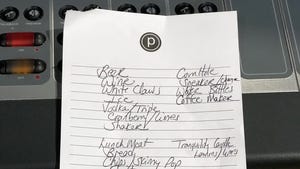 p
Beer Cornhole
Wine Speaker/
White Claws Water Bottles
Ice Coffee Maker
Vodka/Triple
Cranberry/Limes
Shaker
Lunch Meat Tranquility Candle
Bread
Chips/Skinny Pop